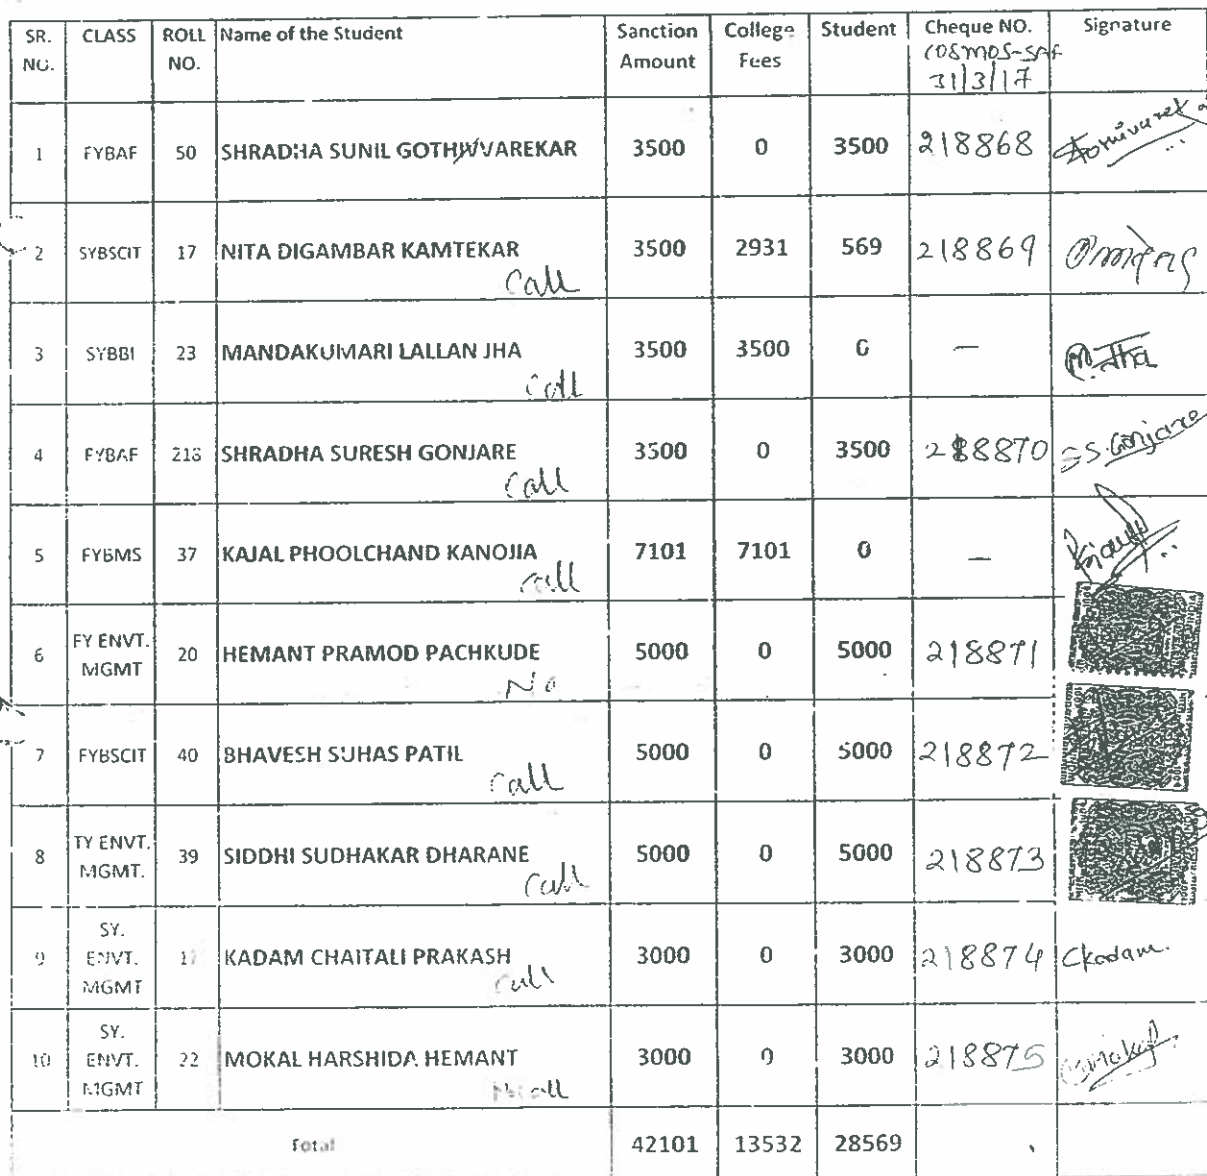 SR. NO. CLASS ROLL NO. Name of the Student Sanction Amount College Fees Student Cheque NO. COSMOS-SAF 31/3/17 Signature
1 FYBAF 50 SHRADHA SUNIL GOTHIVAREKAR 3500 0 3500 218868
2 SYBSCIT 17 NITA DIGAMBAR KAMTEKAR 3500 2931 569 218869
Call
3 SYBBI 23 MANDAKUMARI LALLAN JHA 3500 3500 0 — M. Jha
Call
4 FYBAF 218 SHRADHA SURESH GONJARE 3500 0 3500 218870 S.S. Gonjare
Call
5 FYBMS 37 KAJAL PHOOLCHAND KANOJIA 7101 7101 0 —
Call
6 FY ENVT. MGMT 20 HEMANT PRAMOD PACHKUDE 5000 0 5000 218871
No
7 FYBSCIT 40 BHAVESH SUHAS PATIL 5000 0 5000 218872
Call
8 TY ENVT. MGMT. 39 SIDDHI SUDHAKAR DHARANE 5000 0 5000 218873
Call
9 SY. ENVT. MGMT KADAM CHAITALI PRAKASH 3000 0 3000 218874 Ckadam.
Call
10 SY. ENVT. MGMT 22 MOKAL HARSHIDA HEMANT 3000 0 3000 218875
Total 42101 13532 28569